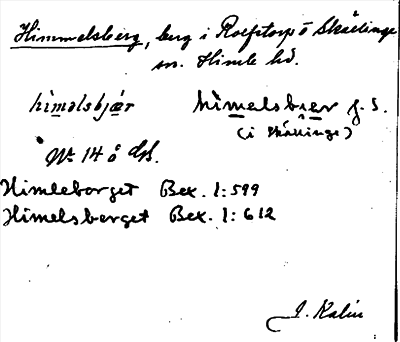 Himmelsberg, berg i Rolfstorps o Skällinge
sn. Himle hd.
himəlsbjær himəlsbær f. S.
(i Skällinge)
Nr 14 å GK.
Himleberget Bex. 1:599
Himelsberget Bex. 1:612
J. Kalin